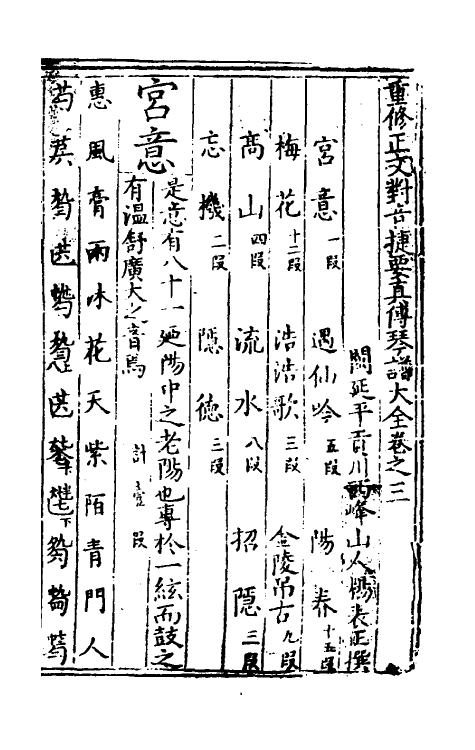 重修正文對音捷要真傳琴譜大全卷之三
閩延平貢川西峰山人楊表正撰
宮意一段 遇仙吟五段 陽春十五段
梅花十二段 浩浩歌三段 金陵吊古九段
高山四段 流水八段 招隱三段
忘機二段 隱德三段
宮意 是意有八十一廼陽中之老陽也專於一絃而鼓之
有溫舒廣大之音焉 計壹段
惠風膏雨味花天紫陌青門人